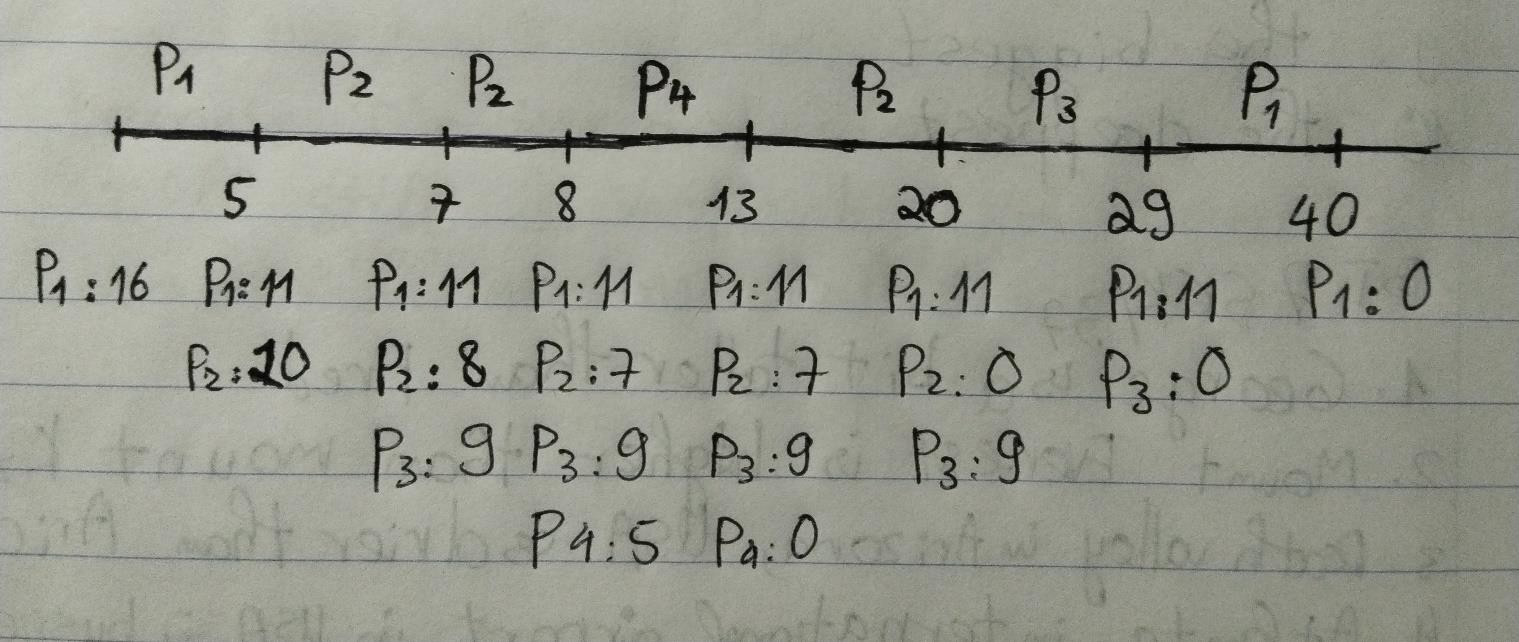 P1 P2 P2 P4 P2 P3 P1
5 7 8 13 20 29 40
P1:16 P1:11 P1:11 P1:11 P1:11 P1:11 P1:11 P1:0
P2:10 P2:8 P2:7 P2:7 P2:0 P3:0
P3:9 P3:9 P3:9 P3:9
P4:5 P4:0